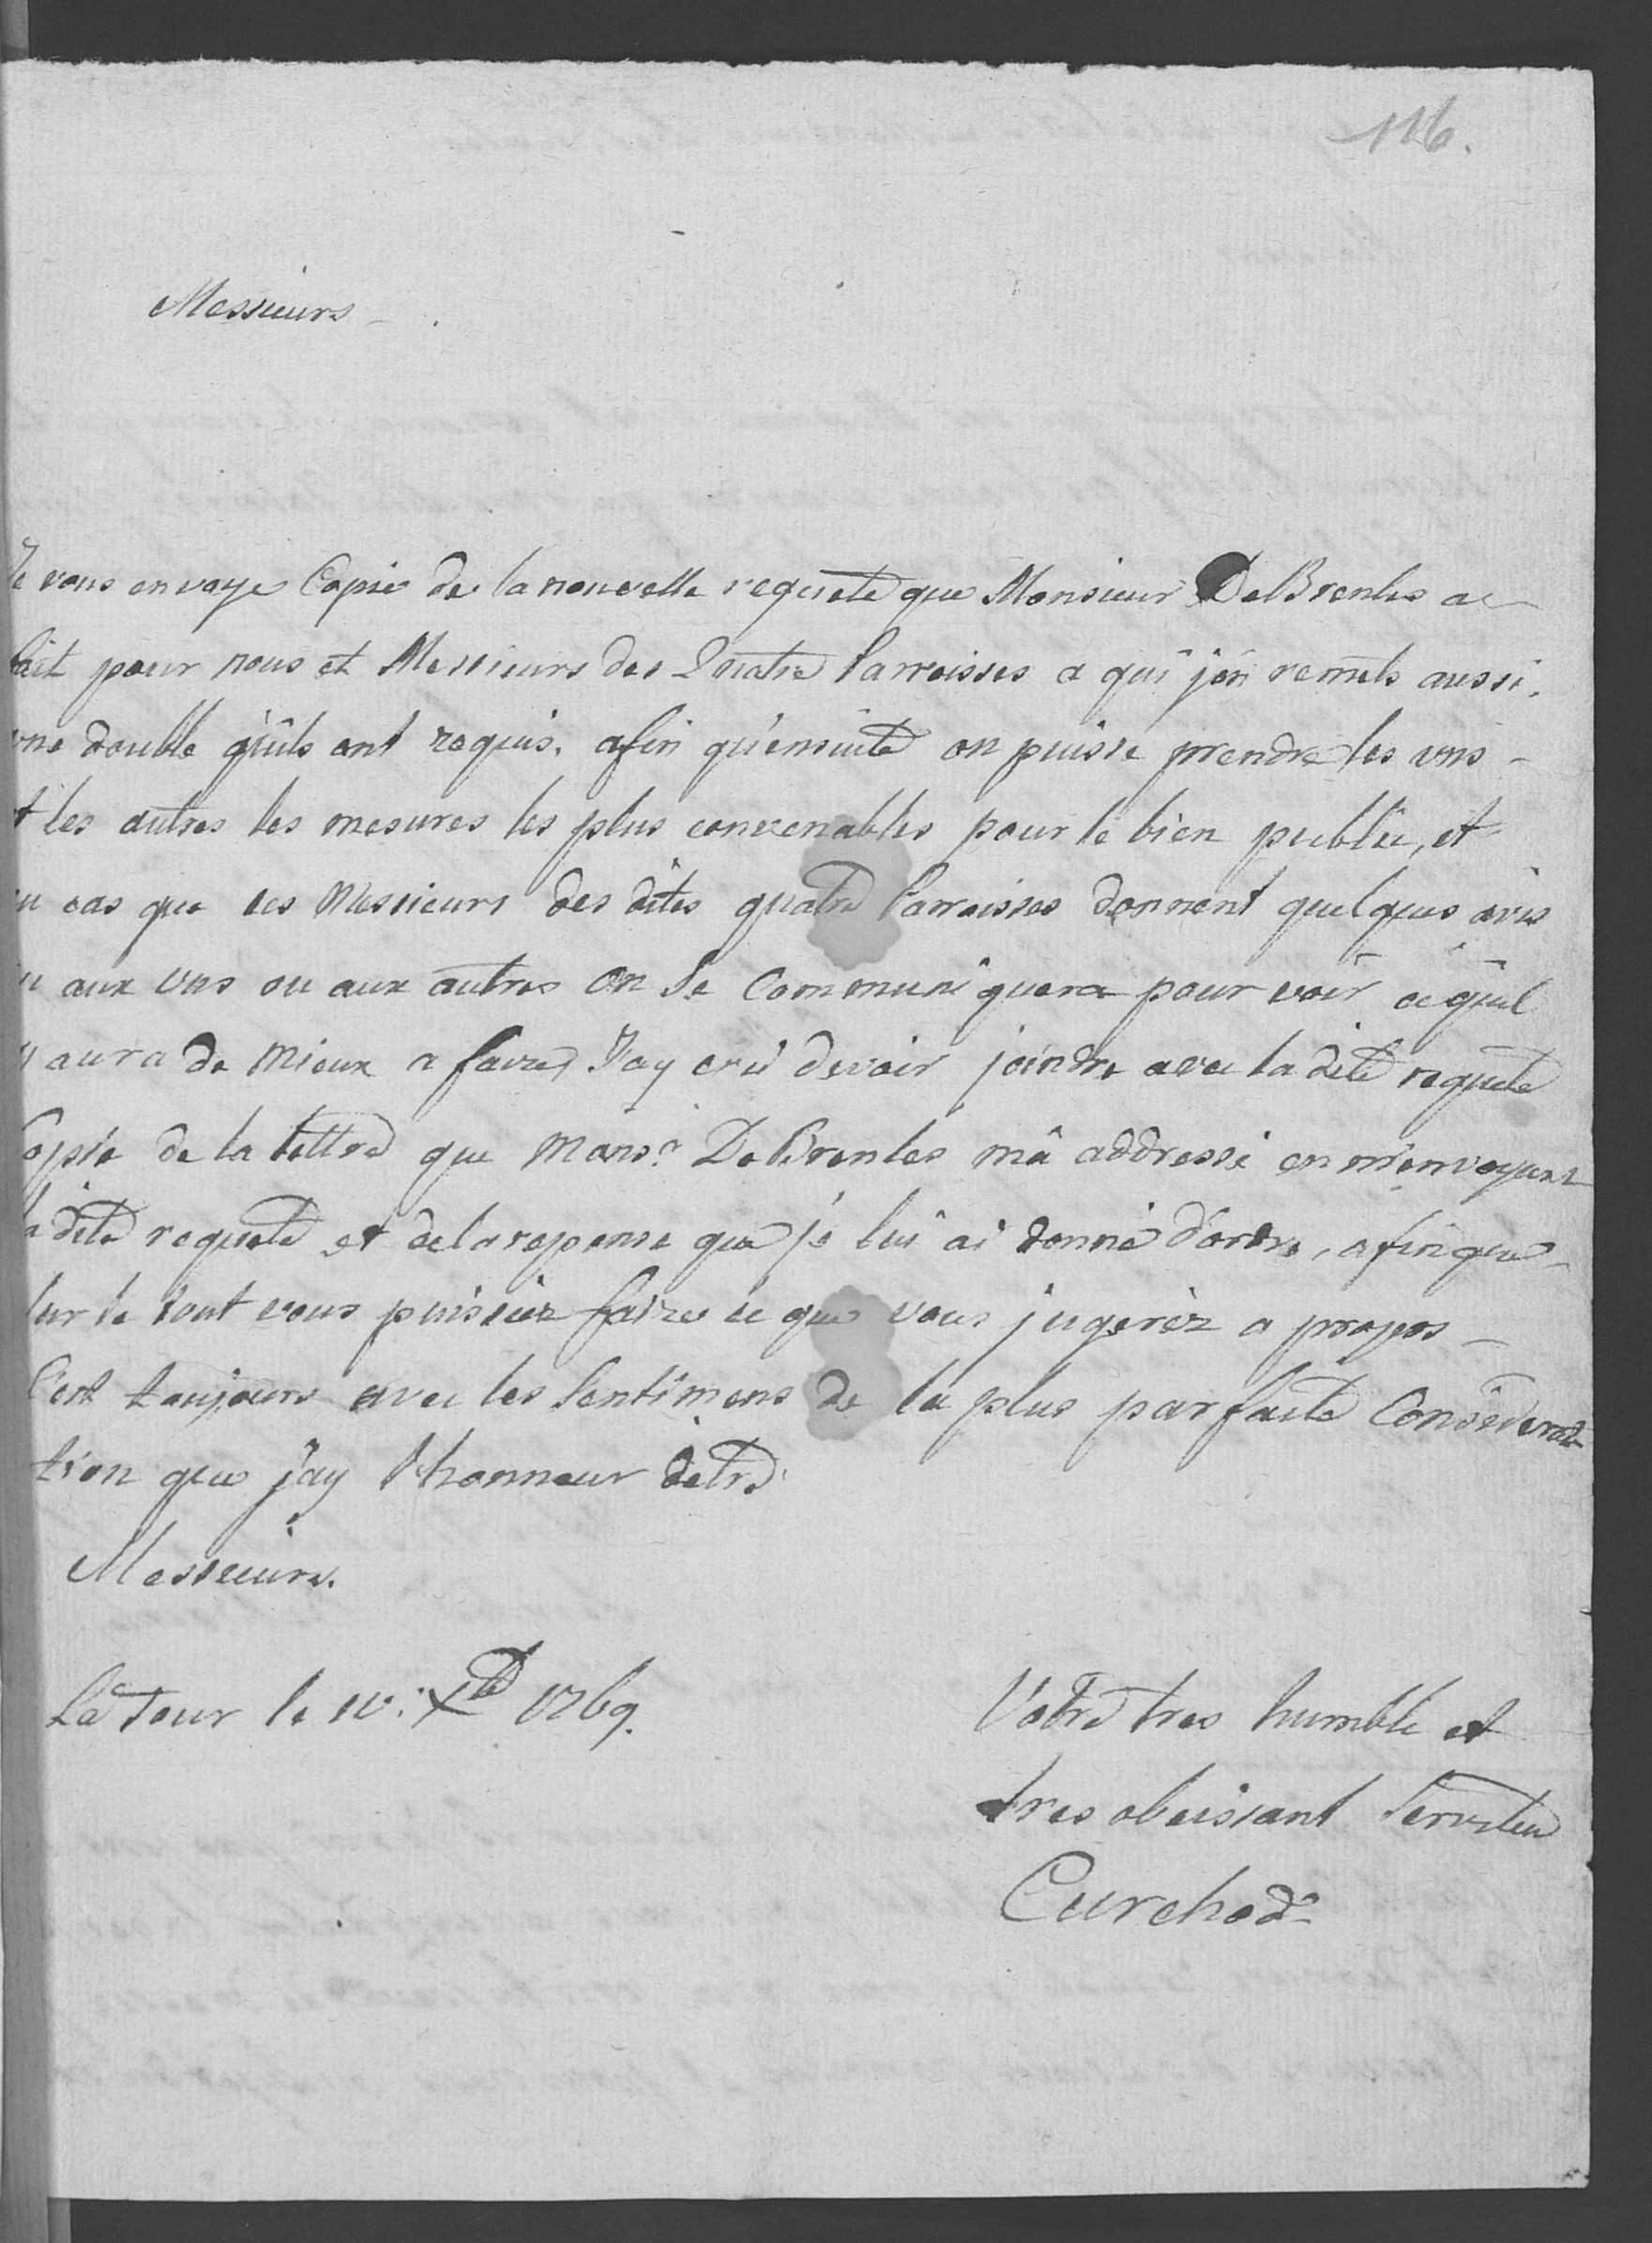 116.
Messieurs
Je vous envoye Copie de la nouvelle requete que Monsieur DeBrenles a
fait pour nous et Messieurs des Quatre Parroisses a qui j'en remets aussi
une double qu'ils ont requis, afin qu'ensuite on puisse prendre les uns
et les autres les mesures les plus convenables pour le bien public, et
au cas que ces Messieurs des dites quatre Parroisses donnent quelques avis
ou aux uns ou aux autres on se Communiquera pour voir ce qu'il
y aura de Mieux a faire, J'ay crû devoir joindre avec la dite requete
Copie de la lettre que Monsr. DeBrenles m'a addressé en m'envoyant
la dite requete et de la reponse que je lui ai donné d'ordre, afin que
sur le tout vous puissiez faire ce que vous jugeréz a propos
C'est toujours avec les Sentimens de la plus parfaite Considera-
tion que j'ay l'honneur detre
Messieurs.
La Tour le Xbre 1769.
Votre tres humble et
tres obeissant Serviteur
Curchod